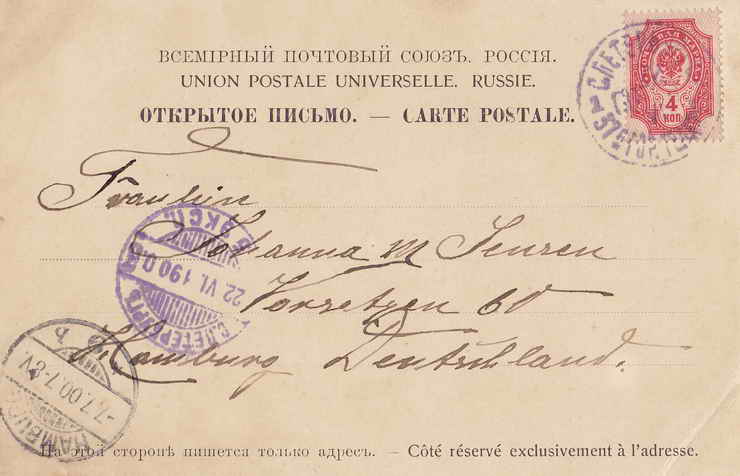 ВСЕМІРНЫЙ ПОЧТОВЫЙ СОЮЗЪ. РОССІЯ.
UNION POSTALE UNIVERSELLE. RUSSIE.
ОТКРЫТОЕ ПИСЬМО. — CARTE POSTALE.
4
КОП
Fräulein
Johanna M Jensen
Vorsetzen 60
Hamburg Deutschland.
С.ПЕТЕРБУРГЪ
22 VI 1900
HAMBURG
7.7.00.7-8V.
На этой сторонѣ пишется только адресъ. — Côté réservé exclusivement à l'adresse.